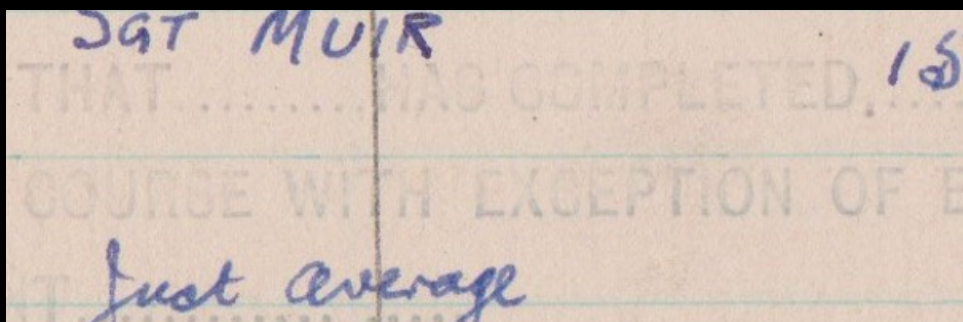 SGT MUIR
THAT ........ HAS COMPLETED. ....
COURSE WITH EXCEPTION OF E
Just average